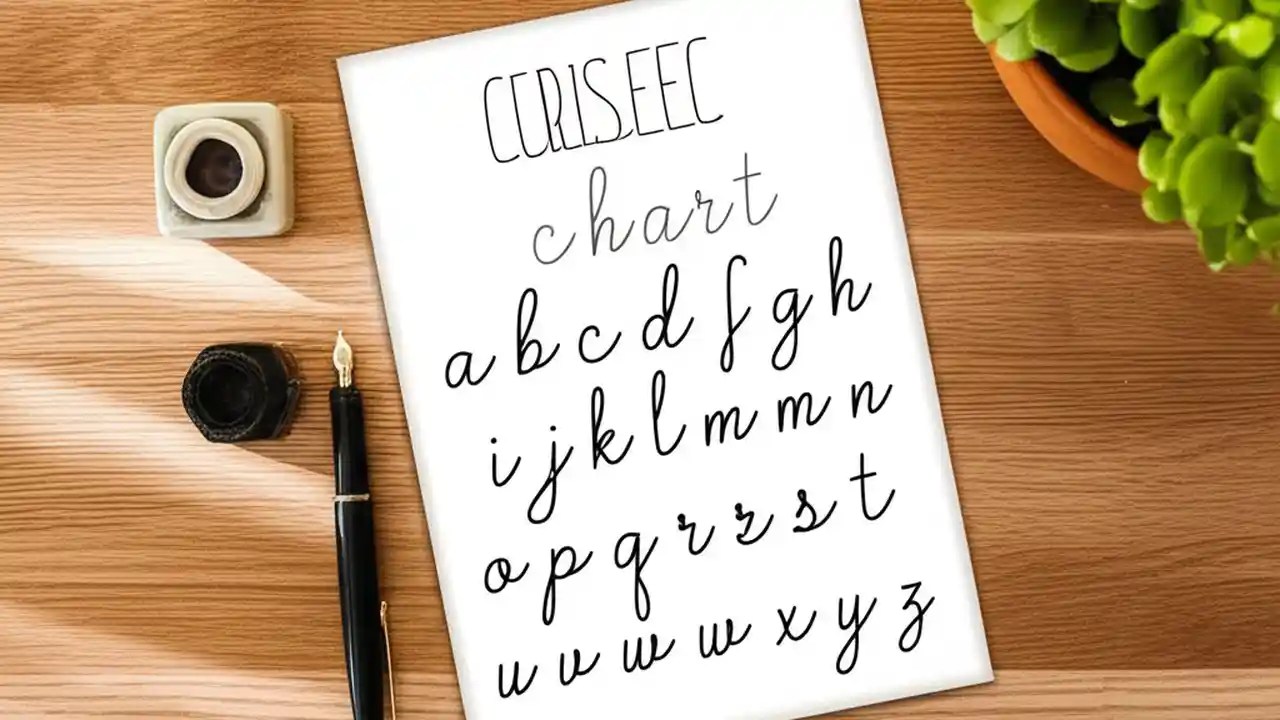 CURLSEEC
chart
a b c d f g h
i j k l m m n
o p q r z s t
u v w w x y z